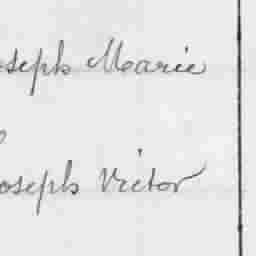 oseph Marie
Joseph Victor